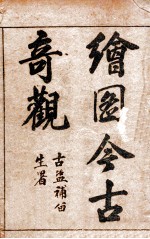 繪圖今古
奇觀
古盐補
生署